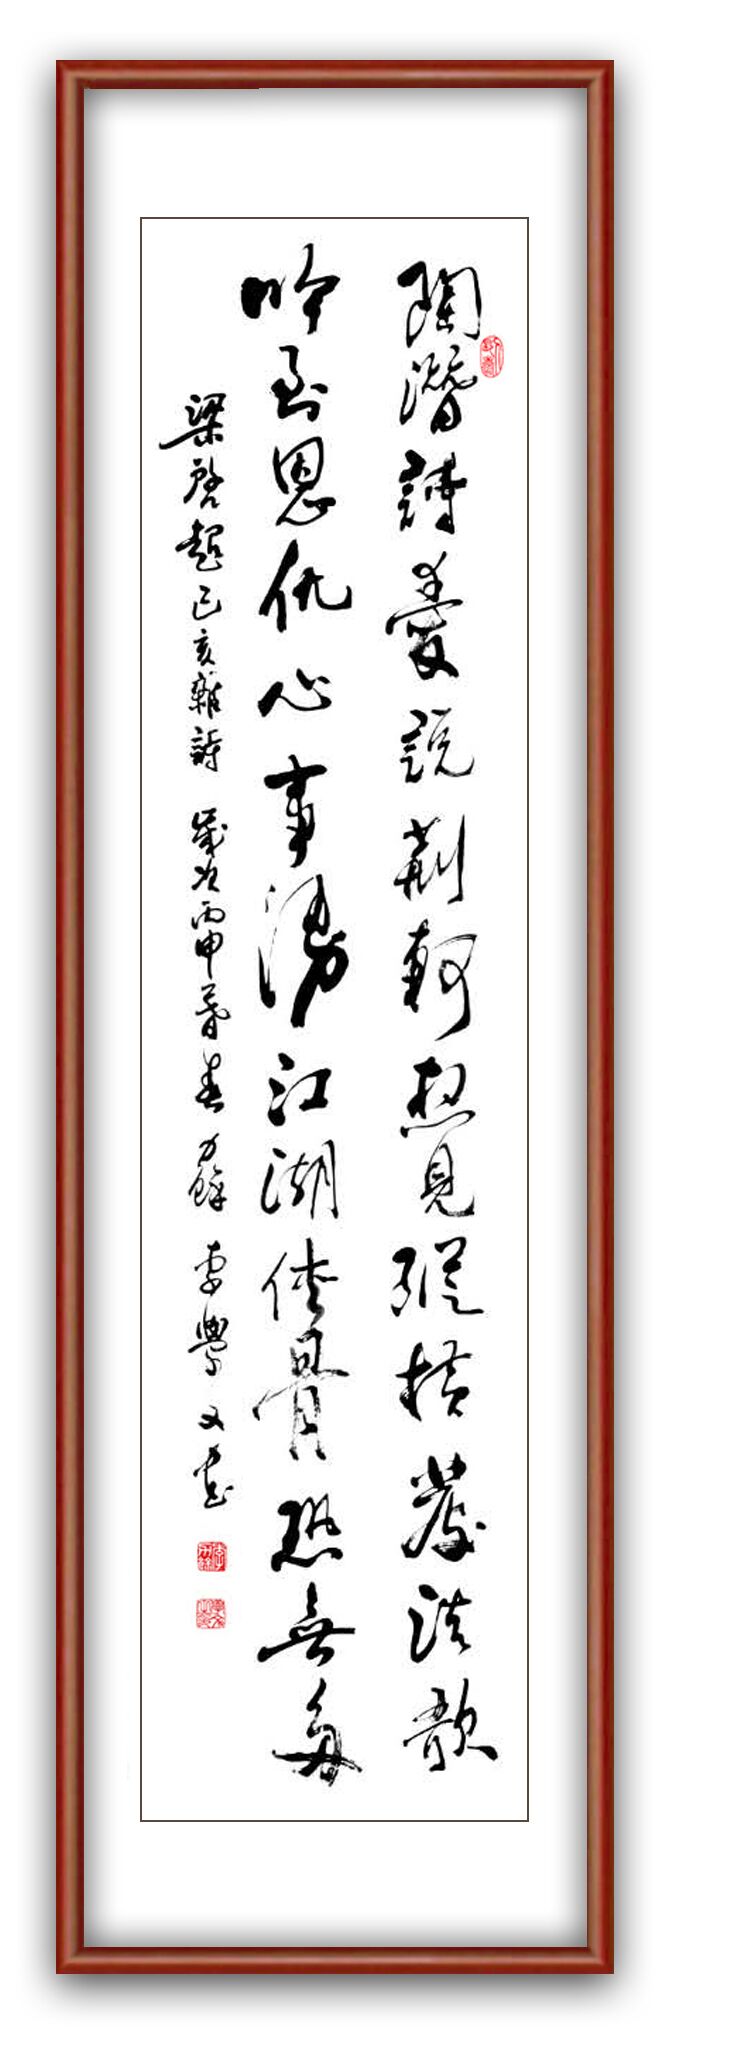 陶潛詩愛說荊軻想見縱橫發浩歌
吟到恩仇心事湧江湖俠骨恐無多
梁啓超己亥雜詩 歲次丙申暮春 餘 李學文書